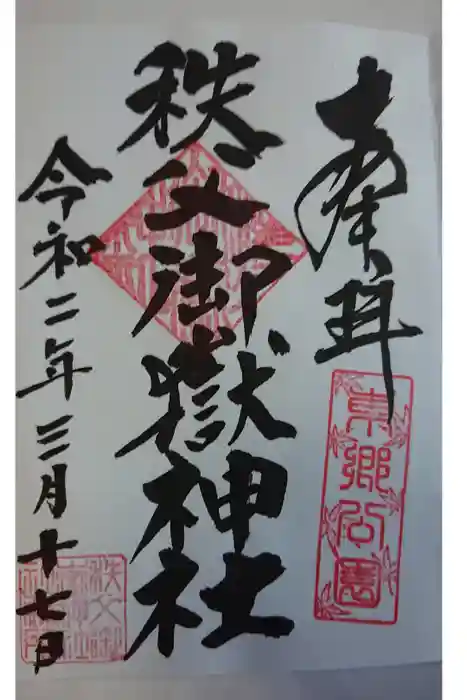 奉拝
東郷公園
秩父御嶽神社
令和二年三月十七日